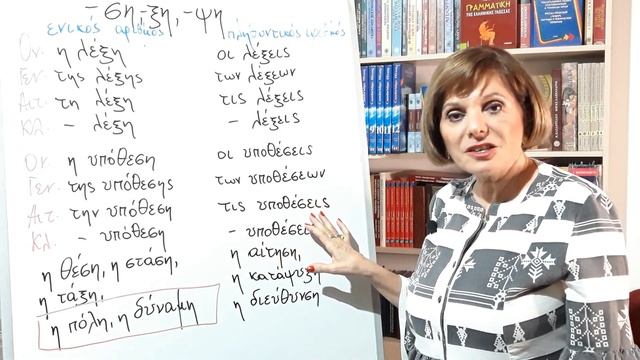 -ση,-ξη,-ψη
ενικός αριθμός πληθυντικός αριθμός
Ον. η λέξη οι λέξεις
Γεν. της λέξης των λέξεων
Αιτ. τη λέξη τις λέξεις
Κλ. - λέξη - λέξεις
Ον. η υπόθεση οι υποθέσεις
Γεν. της υπόθεσης των υποθέσεων
Αιτ. την υπόθεση τις υποθέσεις
Κλ. - υπόθεση - υποθέσε
η θέση, η στάση, η αίτηση,
η τάξη, η κατάψυξη
η πόλη, η δύναμη η διεύθυνση
ΓΡΑΜΜΑΤΙΚΗ
ΤΗΣ ΕΛΛΗΝΙΚΗΣ ΓΛΩΣΣΑΣ
9 10 11 12